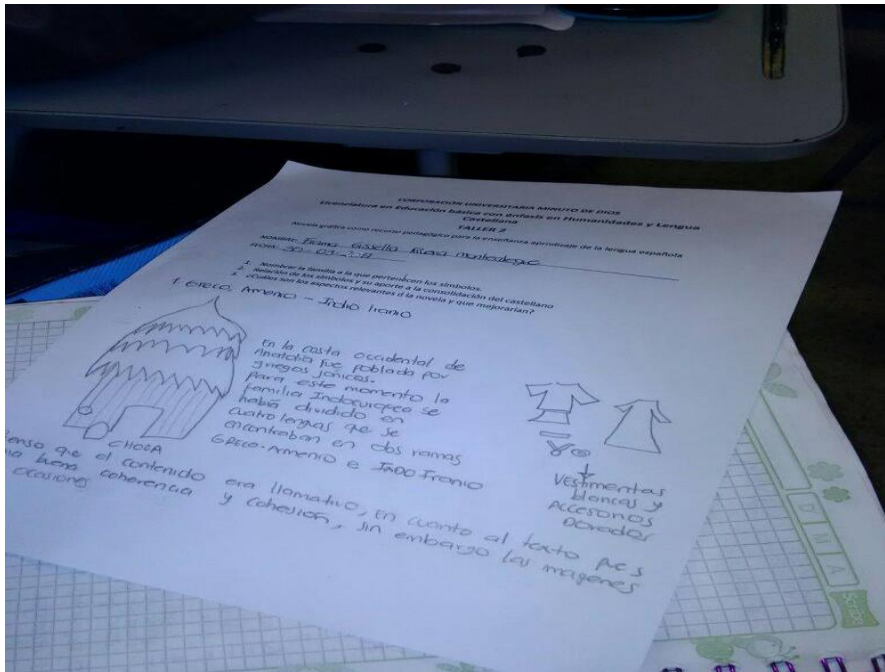 CORPORACIÓN UNIVERSITARIA MINUTO DE DIOS
Licenciatura en Educación básica con énfasis en Humanidades y Lengua
Castellana
TALLER 2
Novela gráfica como recurso pedagógico para la enseñanza aprendizaje de la lengua española
NOMBRE: Gissella
FECHA: 30 - 03
1. Nombrar la familia a la que pertenecen los símbolos.
2. Relación de los símbolos y su aporte a la consolidación del castellano
3. ¿Cuáles son los aspectos relevantes d la novela y que mejorarían?
1. Greco, Armenio - Indio Iranio
En la costa occidental de
Anatolia fue poblada por
griegos jónicos.
Para este momento la
familia Indoeuropea se
había dividido en
cuatro lenguas que se
encontraban en dos ramas
Greco-Armenio e Indo Iranio
CHOZA
Vestimentas
blancas y
Accesorios
Dorados
enso que el contenido era llamativo, en cuanto al texto pues
ia buena coherencia y cohesión, sin embargo las imagenes
ocasiones
D M A
Scribe